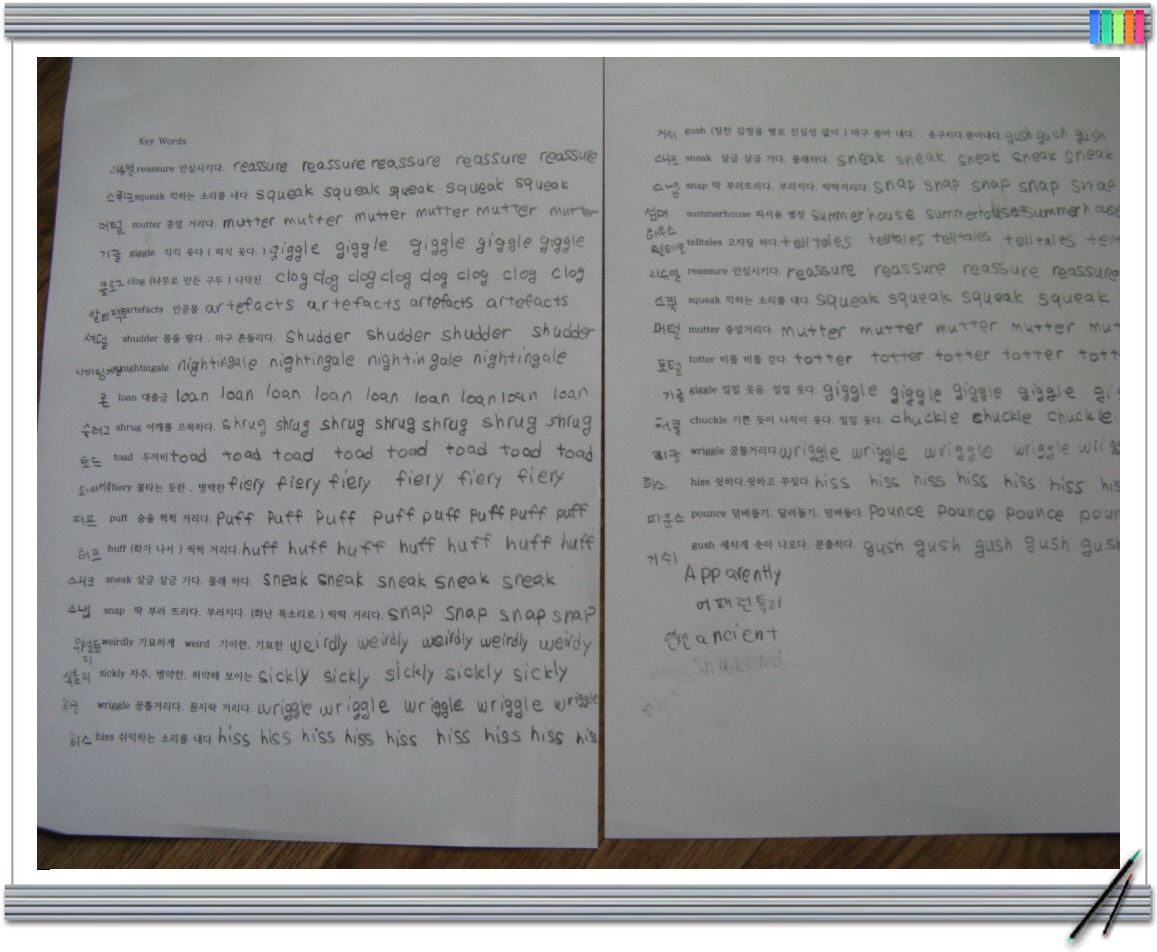 Key Words
reassure 안심시키다. reassure reassure reassure reassure reassure
squeak 끽하는 소리를 내다. squeak squeak squeak squeak squeak
머털 mutter 중얼 거리다. mutter mutter mutter mutter mutter mutter
기글 giggle 킥킥 웃다 ( 피식 웃다. ) giggle giggle giggle giggle giggle
클로그 clog (나무로 만든 구두 ) 나막신 clog clog clog clog clog clog clog clog
artefacts 인공물 artefacts artefacts artefacts artefacts
셔덜 shudder 몸을 떨다 . 마구 흔들리다. Shudder shudder shudder shudder
nightingale nightingale nightingale nightingale nightingale
론 loan 대출금 loan loan loan loan loan loan loan loan
슈러그 shrug 어깨를 으쓱하다. shrug shrug shrug shrug shrug shrug shrug
토드 toad 두꺼비 toad toad toad toad toad toad toad toad
fiery 불타는 듯한 , 명백한 fiery fiery fiery fiery fiery fiery
퍼프 puff 숨을 헉헉 거리다. Puff Puff Puff puff puff puff puff puff
허프 huff (화가 나서 ) 씩씩 거리다. huff huff huff huff huff huff huff
스니크 sneak 살금 살금 가다. 몰래 하다. sneak sneak sneak sneak sneak
스냅 snap 딱 부러 뜨리다. 부러지다. (화난 목소리로 ) 딱딱 거리다. snap snap snap snap
weirdly 기묘하게 weird 기이한, 기묘한 weirdly weirdly weirdly weirdly weirdy
sickly 자주, 병약한, 허약해 보이는 sickly sickly sickly sickly sickly
wriggle 꿈틀거리다. 꼼지락 거리다. wriggle wriggle wriggle wriggle wriggle
히스 hiss 쉬익하는 소리를 내다 hiss hiss hiss hiss hiss hiss hiss hiss his
거쉬 gush (칭찬 감정을 별로 진실성 없이 ) 마구 쏟아 내다. . 솟구치다.쏟아내다. gush gush gush
스니크 sneak 살금 살금 가다. 몰래하다. sneak sneak sneak sneak sneak
스냅 snap 딱 부러뜨리다. 부러지다. 딱딱거리다. snap snap snap snap snap
섬머 summerhouse 피서용 별장 summerhouse summerhouse summerhouse
하우스
telltales 고자질 하다. telltales telltales telltales telltales tell
reassure 안심시키다. reassure reassure reassure reassure
스퀵 squeak 끽하는 소리를 내다. squeak squeak squeak squeak
머털 mutter 중얼거리다. mutter mutter mutter mutter mut
토털 totter 비틀 비틀 걷다. totter totter totter totter tott
기글 giggle 낄낄 웃음. 낄낄 웃다. giggle giggle giggle giggle gi
처클 chuckle 기쁜 듯이 나직이 웃다. 낄낄 웃다. chuckle chuckle chuckle.
리글 wriggle 꿈틀거리다. wriggle wriggle wriggle wriggle wrig
히스 hiss 쉿하다.쉿하고 꾸짖다. hiss hiss hiss hiss hiss hiss his
파운스 pounce 덤벼들기. 달려들기. 덤벼들다. Pounce Pounce Pounce poun
거쉬 gush 세차게 솟아 나오다. 분출하다. gush gush gush gush gush
Apparently
어패런틀리
ancient